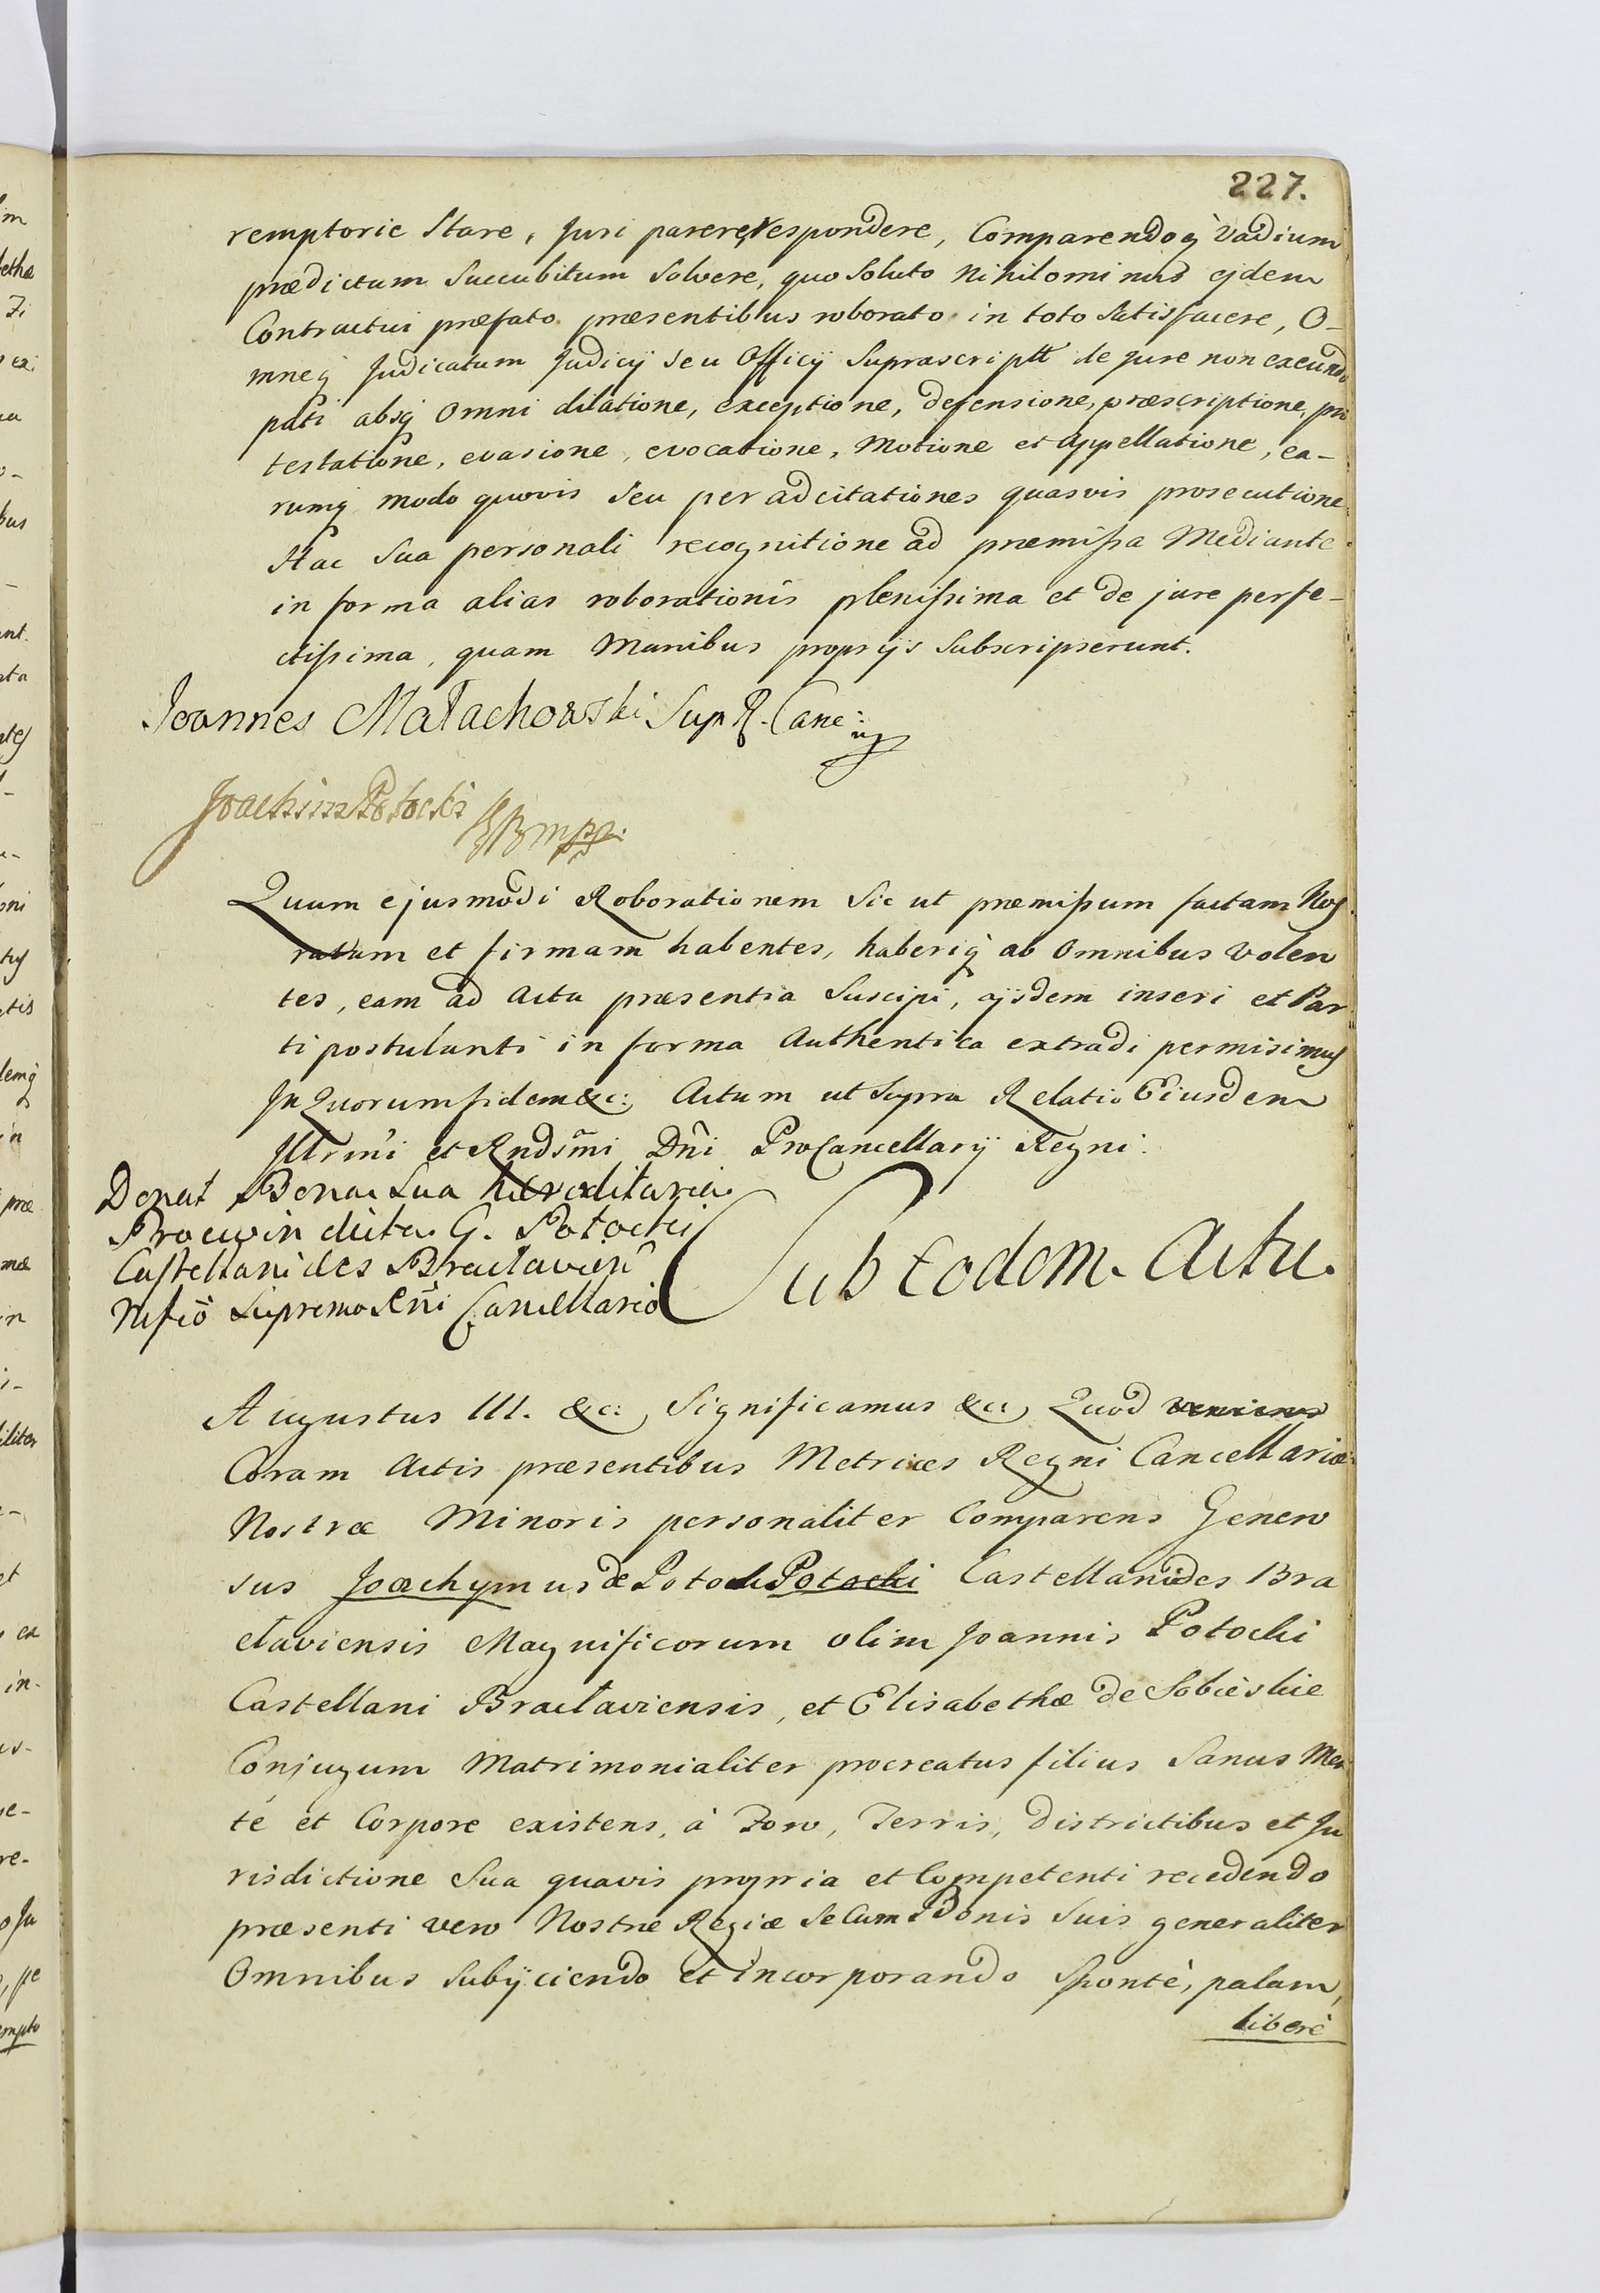 227.
remptorie Stare, Juri parere, respondere, Comparendoq₃ Vadium
prædictum Succubitum Solvere, quo Soluto Nihilominus ejdem
Contractui præfato præsentibus roborato in toto Satisfacere, O-
mneq₃ Judicatum Judicÿ Seu Officÿ Suprascriptt de Jure non exeundo
pati absq₃ Omni dilatione, exceptione, defensione, præscriptione, pro
testatione, evasione, evocatione, Motione et Appellatione, ea-
rumq₃ modo quovis Seu per adcitationes quasvis prosecutione
Hac Sua personali recognitione ad præmissa Mediante
in forma alias roborationis plenissima et de jure perfe-
ctissima, quam Manibus proprÿs Subscripserunt.
Joannes Małachowski Sup R. Canc:
Joachim Potocki
Quum ejusmodi Roborationem Sic ut præmissum factam Nos
ratam et firmam habentes, haberiq₃ ab Omnibus Volen
tes, eam ad Acta præsentia Suscipi, ÿsdem inseri et Par
ti postulanti in forma Authentica extradi permisimus
In Quorum fidem &c: Actum ut Supra Relatio Eiusdem
Illrmi et Rndsmi Dni ProCancellarÿ Regni.
Donat Bona Sua hæreditaria
Procwin dicta G. Potocki
Castellanides Braclavien
Mfico Supremo Rni Cancellario
Sub Eodem Actu.
Augustus III. &c: Significamus &c: Quod
Coram Actis præsentibus Metrices Regni Cancellariæ
Nostræ Minoris personaliter Comparens Genero
sus Joachymus de Potok Potocki Castellanides Bra
claviensis Magnificorum olim Joannis Potocki
Castellani Braclaviensis, et Elisabethæ de Sobieskie
Conjugum Matrimonialiter procreatus filius Sanus Men
te et Corpore existens, à Foro, Terris, Districtibus et Ju
risdictione Sua quavis propria et Competenti recedendo
præsenti vero Nostræ Regiæ Se Cum Bonis Suis generaliter
Omnibus Subÿciendo et incorporando Spontè, palam,
liberè